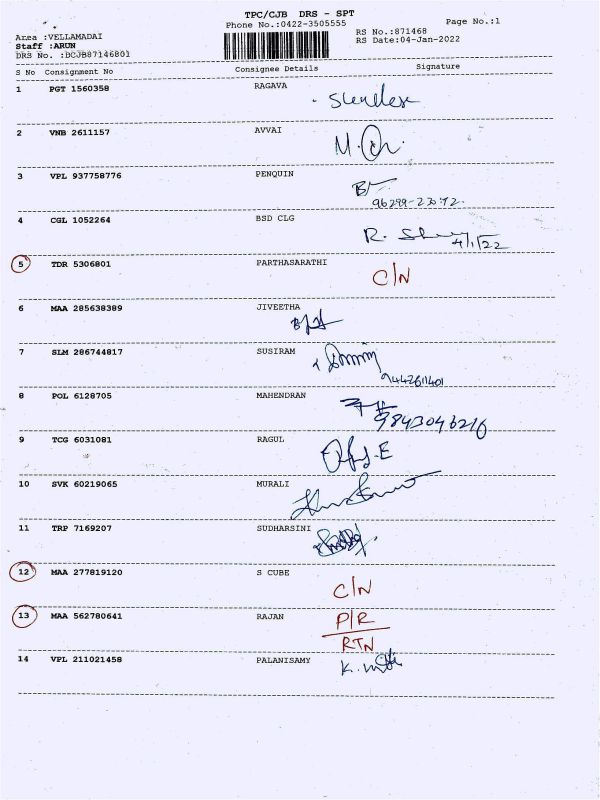 TPC/CJB DRS - SPT
Phone No.:0422-3505555
Page No.:1
Area :VELLAMADAI
RS No.:871468
Staff :ARUN
RS Date:04-Jan-2022
DRS No. :BCJB87146801
S No Consignment No Consignee Details Signature
1 PGT 1560358 RAGAVA
2 VNB 2611157 AVVAI
3 VPL 937758776 PENQUIN
4 CGL 1052264 BSD CLG
4/1/22
5 TDR 5306801 PARTHASARATHI
C/N
6 MAA 285638389 JIVEETHA
7 SLM 286744817 SUSIRAM
9442611401
8 POL 6128705 MAHENDRAN
9843046216
9 TCG 6031081 RAGUL
10 SVK 60219065 MURALI
11 TRP 7169207 SUDHARSINI
12 MAA 277819120 S CUBE
C/N
13 MAA 562780641 RAJAN
P/R
RTN
14 VPL 211021458 PALANISAMY